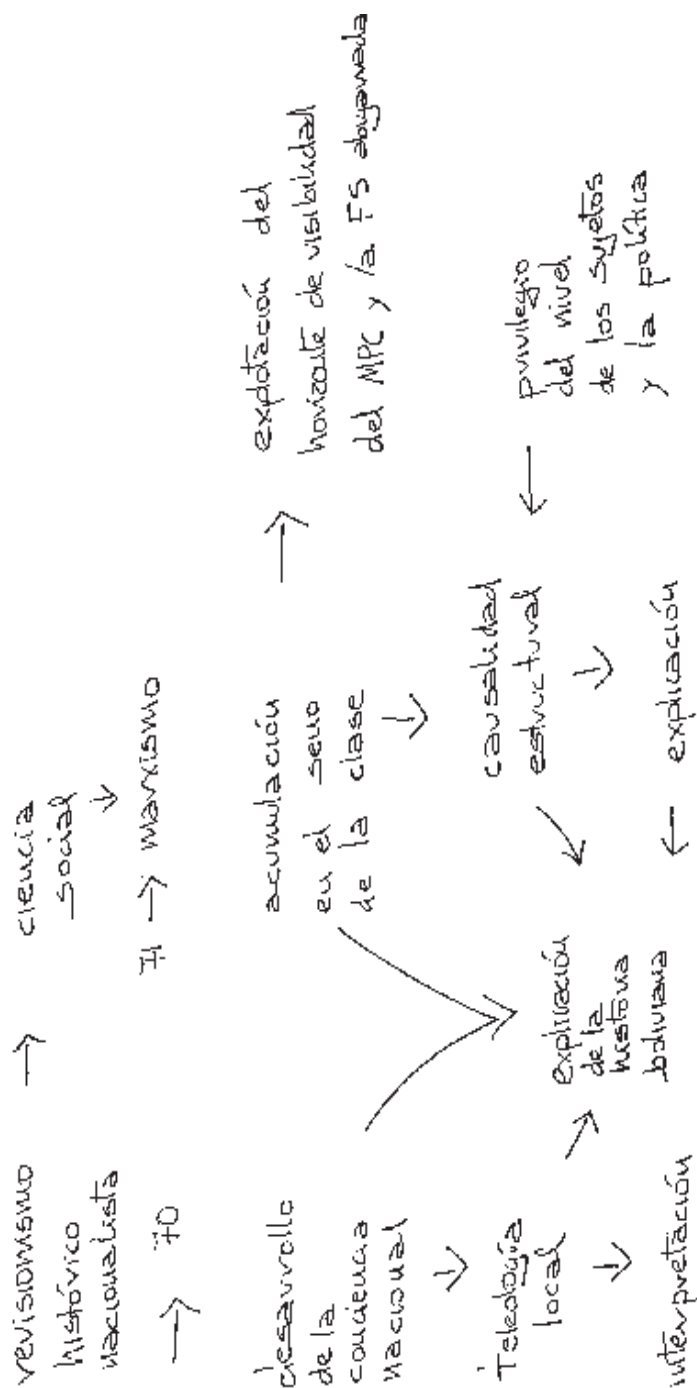 revisionismo
histórico
nacionalista
→
ciencia
social
→ 70
71 → marxismo
desarrollo
de la
conciencia
nacional
acumulación
en el seno
de la clase
→
explotación del
horizonte de visibilidad
del MPC y la FS abigarrada
Teleología
local
causalidad
estructural
←
privilegio
del nivel
de los sujetos
y la política
explicación
de la
historia
boliviana
←
explicación
interpretación